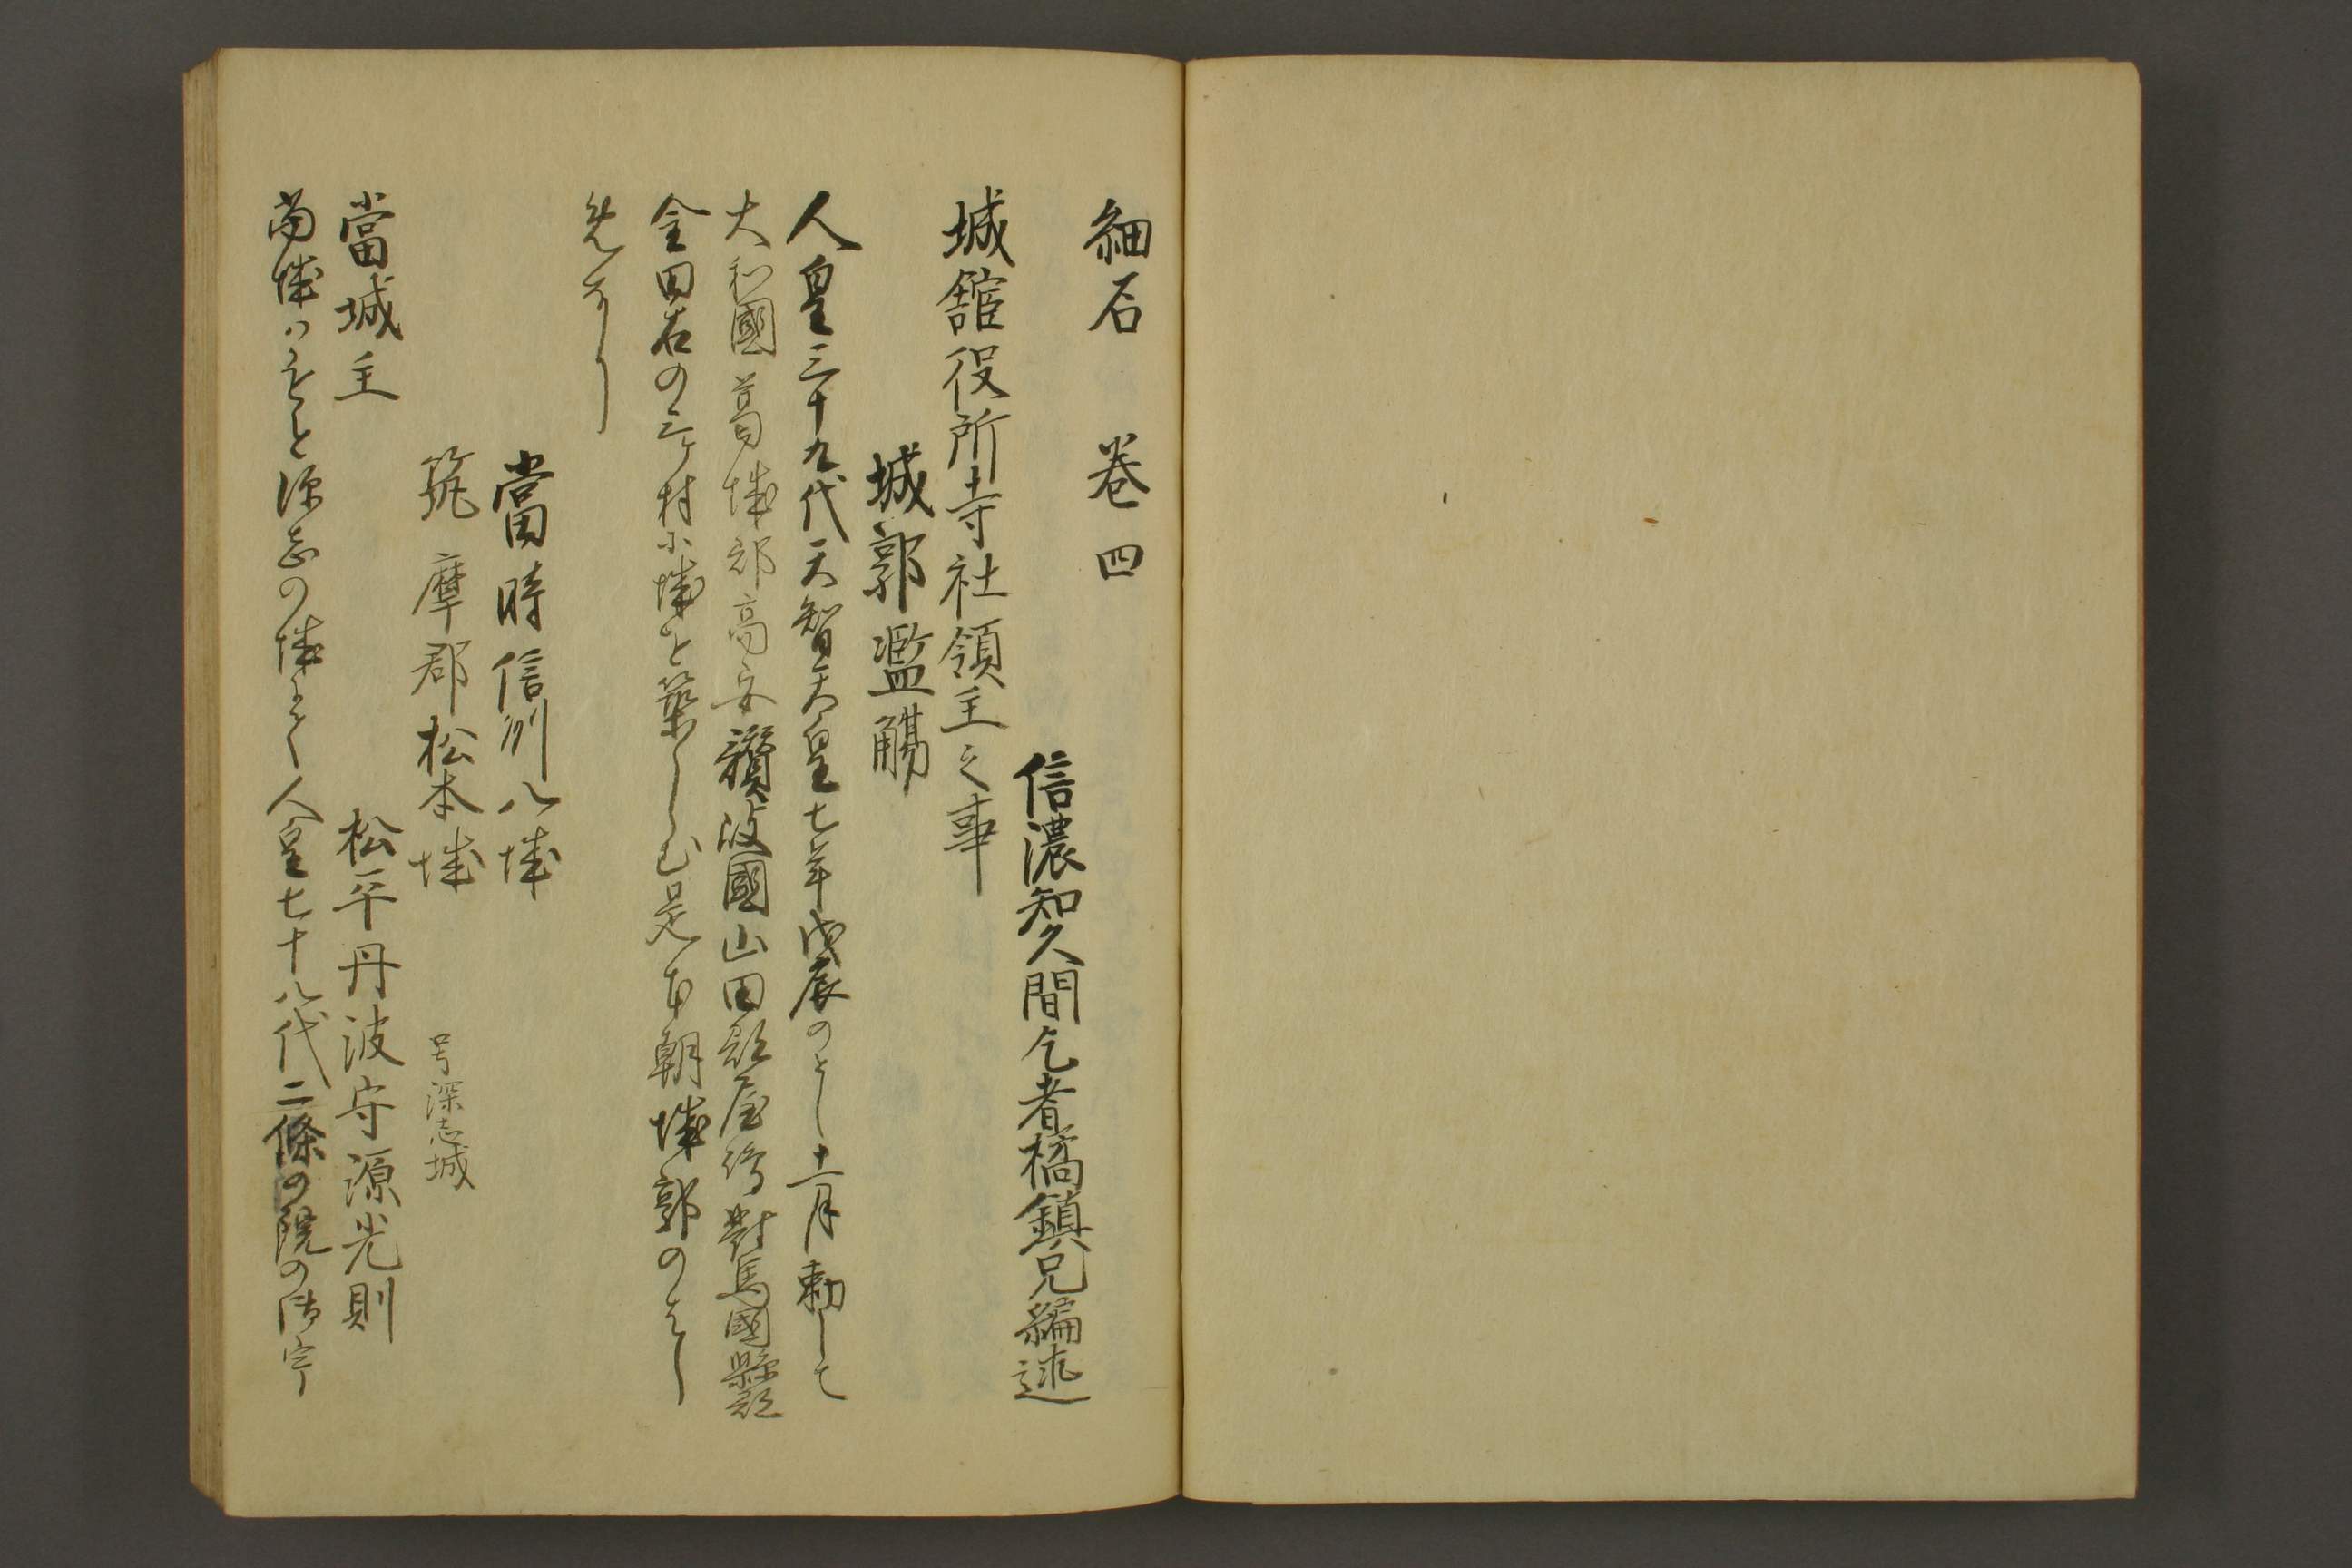 細石　巻四
信濃知久間乞者橘鎮兄編述
城舘役所寺社領主之事
城郭濫觴
人皇三十九代天智天皇七年戊辰のとし十一月勅して
大和國葛城郡高安讃岐國山田郡屋嶋對馬國縣郡
金田右の三ケ村に城を築しむ是本朝城郭のはし
免なり
當時信州八城
筑摩郡松本城　号深志城
當城主　松平丹波守源光則
当城ハもと深志の城とて人皇七十八代二條の院の御宇